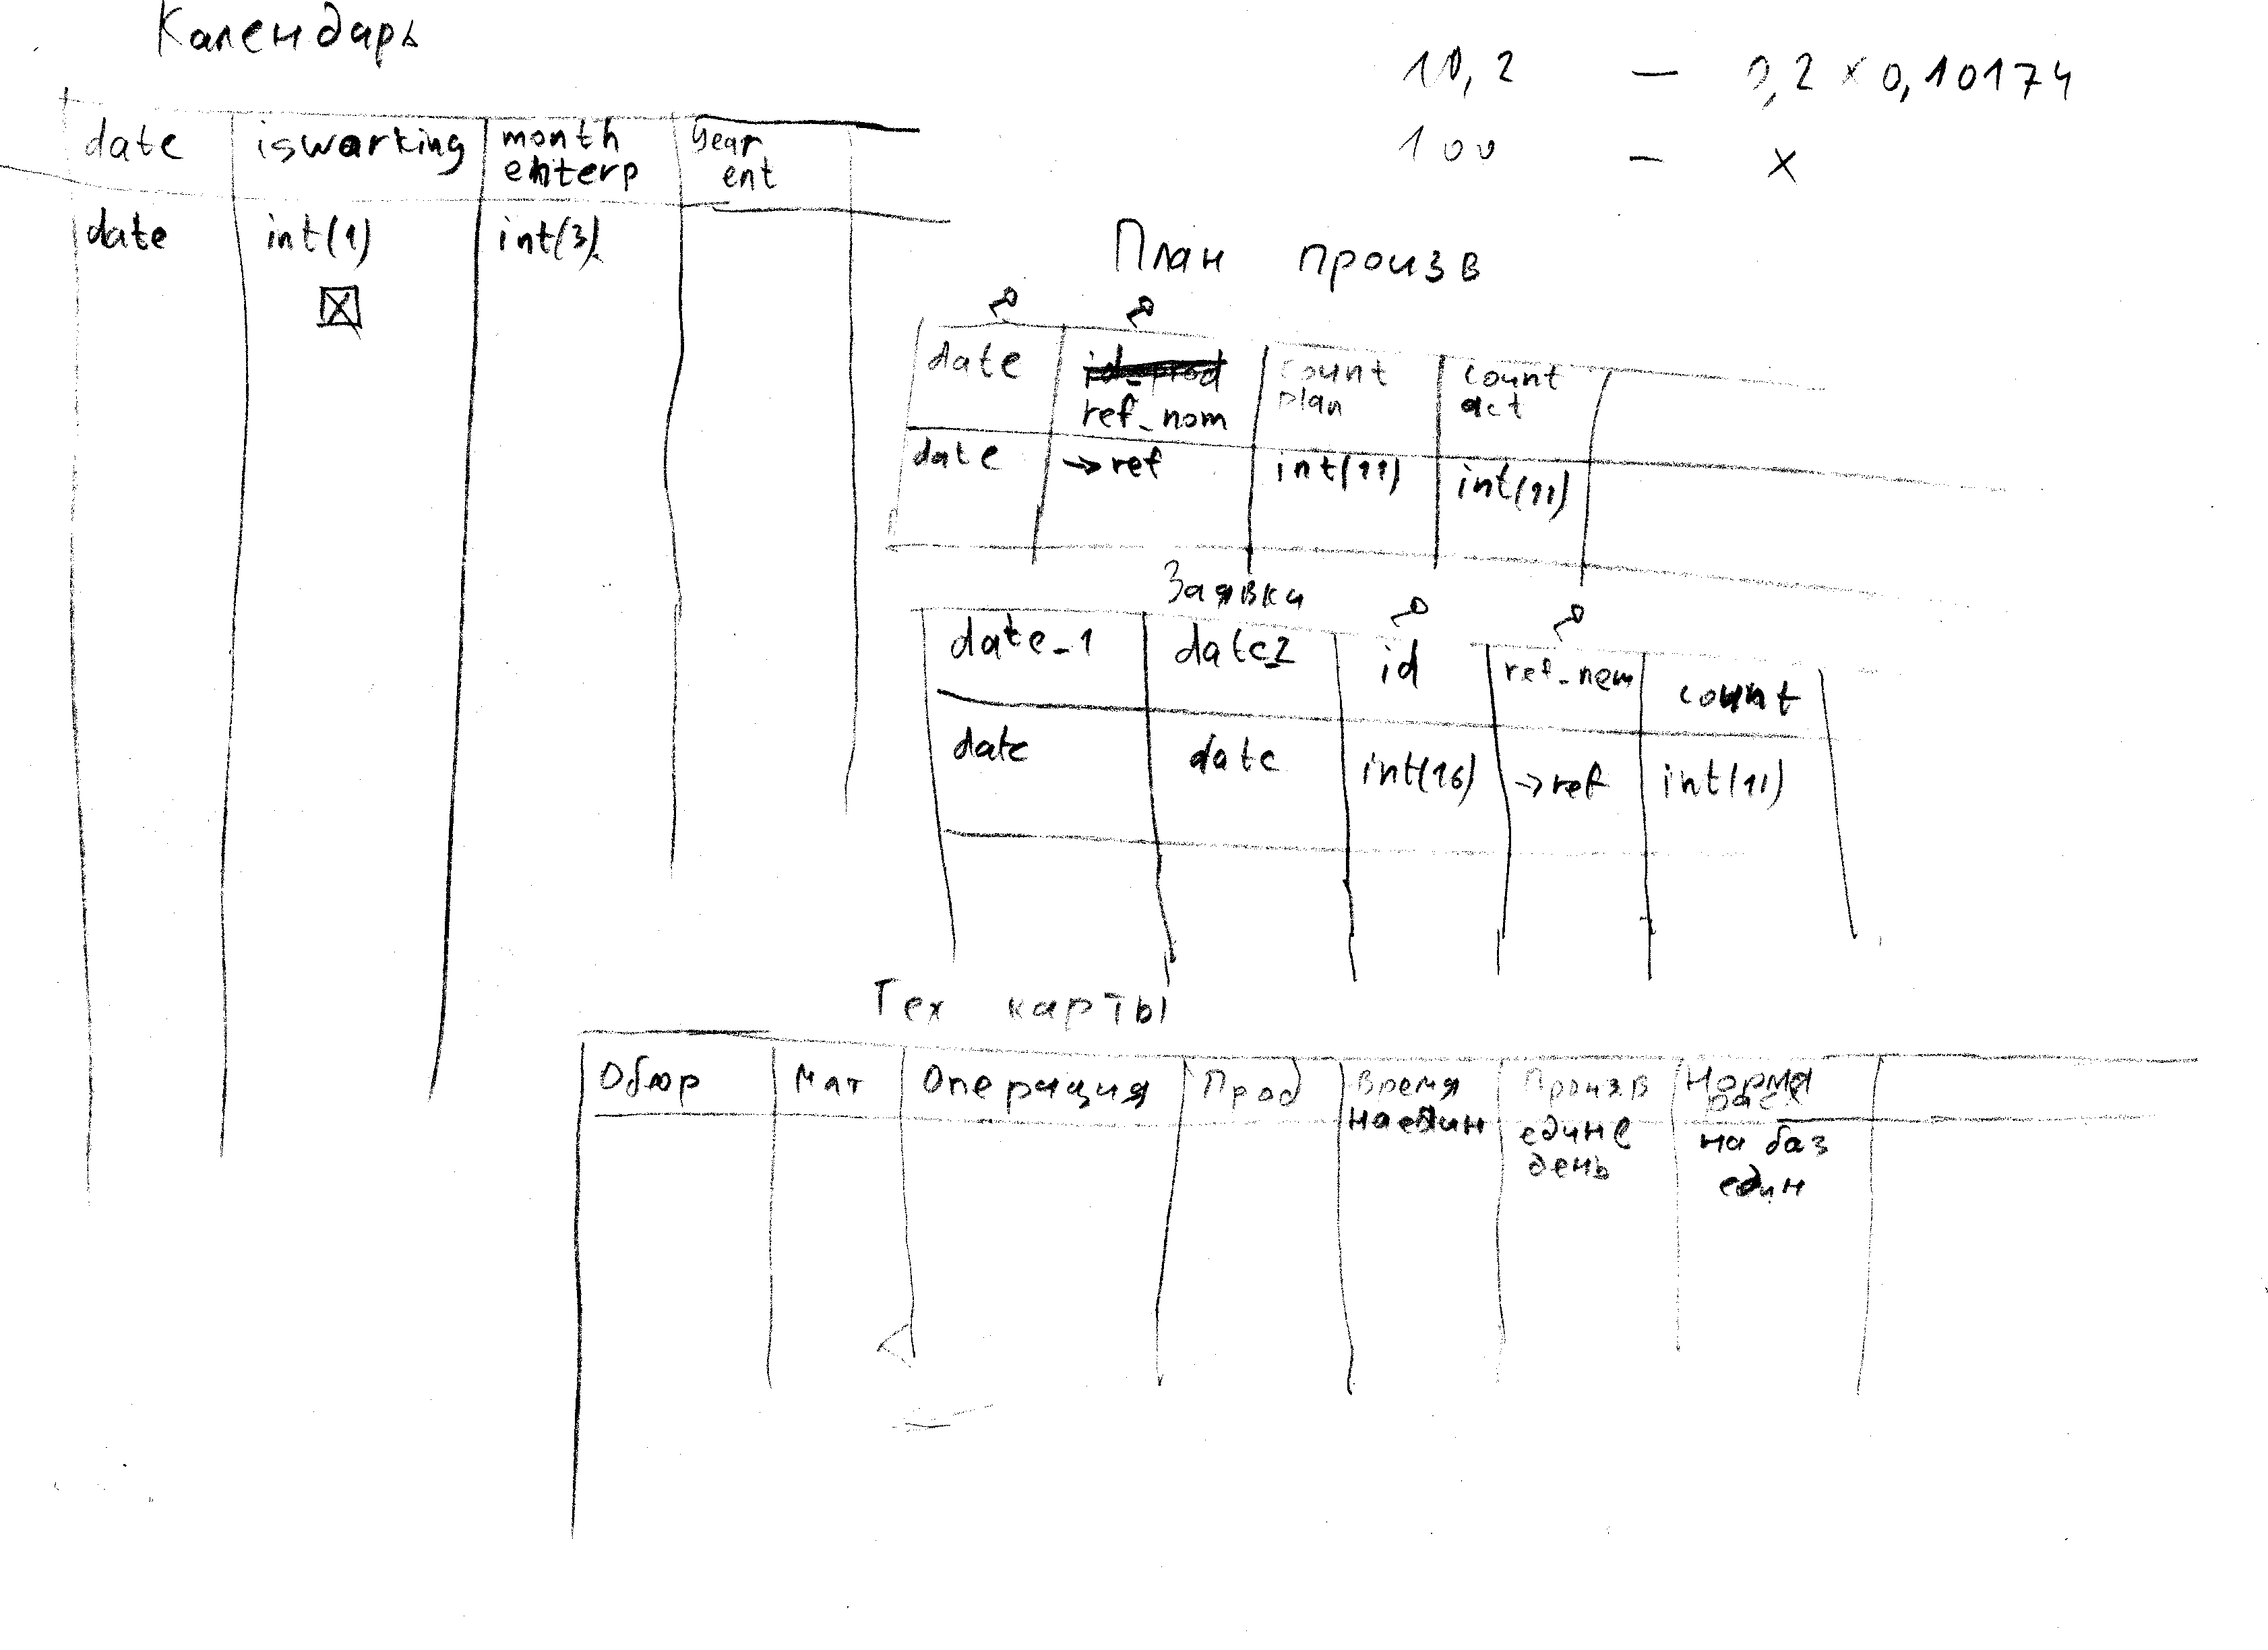 Календарь
10,2 — 0,2 x 0,10174
100 — x
date isworking month enterp year ent
date int(1) int(3)
План произв
date id_prod ref_nom count plan count act
date → ref int(11) int(11)
Заявки
date_1 date_2 id ref_nom count
date date int(16) → ref int(11)
Тех карты
Обор Мат Операция Прод Время на един Произв един в день Норма расх на баз един